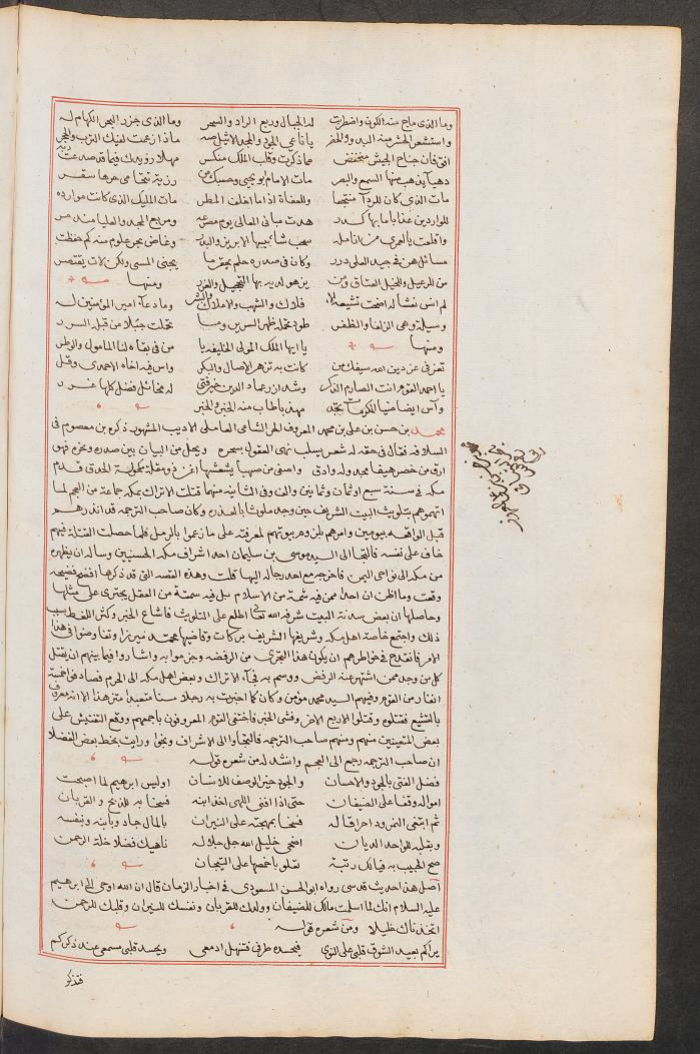 وما الذى ماج منه الكون واضطربت له الجبال وريع الراد والسحر وما الذى جزر البحر الكهام له
واستشعر الحشر منه البدو والحضر يا ناعى المجد الاثيل صه ماذا زعمت لفيك الترب والحجر
انى فان جناح الجيش منخفض مما ذكرت وقلب الملك منكسر مهلا رويدك فيما قد صدعت به
دهياً يذهب منها السمع والبصر مات الامام ابو يحيى وحسبك من رزية تتحامى حرها سقر
مات الذى كان للرداً منتجعا وللعفاة اذا ما اخلف المطر مات المليك الذى كانت موارده
للواردين عذابا ما بها كدر هدت مبانى المعالى يوم مصرعه ومربع المجد والعليا منه
واقلعت بالعرى من انامله سحب شآبيبها الابريز والبدر وغاض بحر علوم منه كم حفظت
مسائل هن فى جيد العلى درر وكان فى صدره حلم يجنى المسى ولكن لات يقتصر
من للرعيل وللخيل العتاق ومن يزهو لديه بها التحجيل والغرر ومنها
لم انس نشأ له اضحت تشيعه فلاك والشهب والاملاك والبشر وما دعاً امير المؤمنين له
وسيلة وهى الزلفا والظفر طود تحمله ظهر السرير وما تحملت جبلا من قبله السرر
ومنها يا ايها الملك المولى الخليفة يا من فى بقاه لنا المأمول والوطر
تعز فى عز دين الله سيفك من كانت به تزهر الاصال والبكر واس فيه اخاه الاحمدى وقل
يا احمد القوم انت الصارم الذكر وشد ازر عماد الدين خير فتى له مخائل فضل كلها غرر
وآس ايضا صنيا للكرمات يجد مهذب طاب منه الخبر والخبر
محمد بن حسن بن على بن محمد المعروف الحر الشامى العاملى الاديب المشهور ذكره بن معصوم فى
السلافه فقال فى حقه له شعر يسلب نهى العقول بسحره ويحل من البيان بين صدره ونحره فهو
ارق من خصر هيفا مجدوله وادق واصفى من صهبا يشعشعها اغن ذو مقلة مكحولة الحدق قدم
مكه فى سنة سبع او ثمان وثمانين والف وفى الثانية منهما قتلت الاتراك بمكه جماعة من العجم لما
اتهموهم بتلويث البيت الشريف حين وجد ملوثا بالعذره وكان صاحب الترجمه قد انذرهم
قبل الواقعه بيومين وامرهم بلزوم بيوتهم لمعرفته على ما زعموا بالرمل فلما حصلت القتلة فيهم
خاف على نفسه فالتجا الى السيد موسى بن سليمان احد اشراف مكه الحسنيين وساله ان يظهره
من مكه الى نواحى اليمن فاخرجه مع احد رجاله اليها قلت وهذه القصه التى قد ذكرها افضح فضيحه
وقعت وما اظن ان احداً ممن فيه شمة من الاسلام بل فيه سمة من العقل يجترى على مثلها
وحاصلها ان بعض سدنة البيت شرفه الله تعالى اطلع على التلويث فاشاع الخبر وكثر اللغط بسبب
ذلك واجتمع خاصة اهل مكه وشريفها الشريف بركات وقاضيها محمد ميرزا وتفاوضوا فى هذا
الامر فانقدح فى خواطرهم ان يكون هذا التجرى من الرفضه وجزموا به واشاروا فيما بينهم ان يقتل
كل من وجد ممن اشتهر عنه الرفض ووسم به فجآء الاتراك وبعض اهل مكه الى الحرم فصادفوا خمسة
انفار من القوم وفيهم السيد محمد مؤمن وكان كما اخبرت به رجلا مسنا متعبدا متزهدا الا انه معروف
بالتشيع فقتلوه وقتلوا الاربع الاخر وفشى الخبر فاختفى القوم المعروفون باجمعهم ووقع التفتيش على
بعض المتعينين منهم ومنهم صاحب الترجمه فالتجاوا الى الاشراف ونجوا ورايت بخط بعض الفضلا
ان صاحب الترجمه رجع الى العجم وانشد له من شعره قوله
فضل الفتى بالجود والاحسان والجود خير الوصف للانسان اوليس ابرهيم لما اصبحت
امواله وقفا على الضيفان حتى اذا افنى اللهى اخذ ابنه فسخا به للذبح والقربان
ثم ابتغى النمرود احراقا له فسخا بمهجته على النيران بالمال جاد وبابنه وبنفسه
وبقلبه للواحد الديان اضحى خليل الله جل جلاله ناهيك فضلا خلة الرحمن
صح الحديث به فيالك رتبة تعلو باخمصها على التيجان
اصل هذا حديث قدسى رواه ابو الحسن المسعودى فى اخبار الزمان قال ان الله اوحى الى ابرهيم
عليه السلام انك لما اسلمت مالك للضيفان وولدك للقربان ونفسك للنيران وقلبك للرحمن
اتخذناك خليلا ومن شعره قوله
يراكم بعيد الشوق قلبى على النوى فيحسده طرفى فتنهل ادمعى ويحسد قلبى مسمعى عند ذكركم
فتذكو